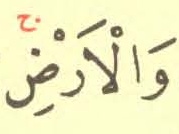 وَالْاَرْضِ